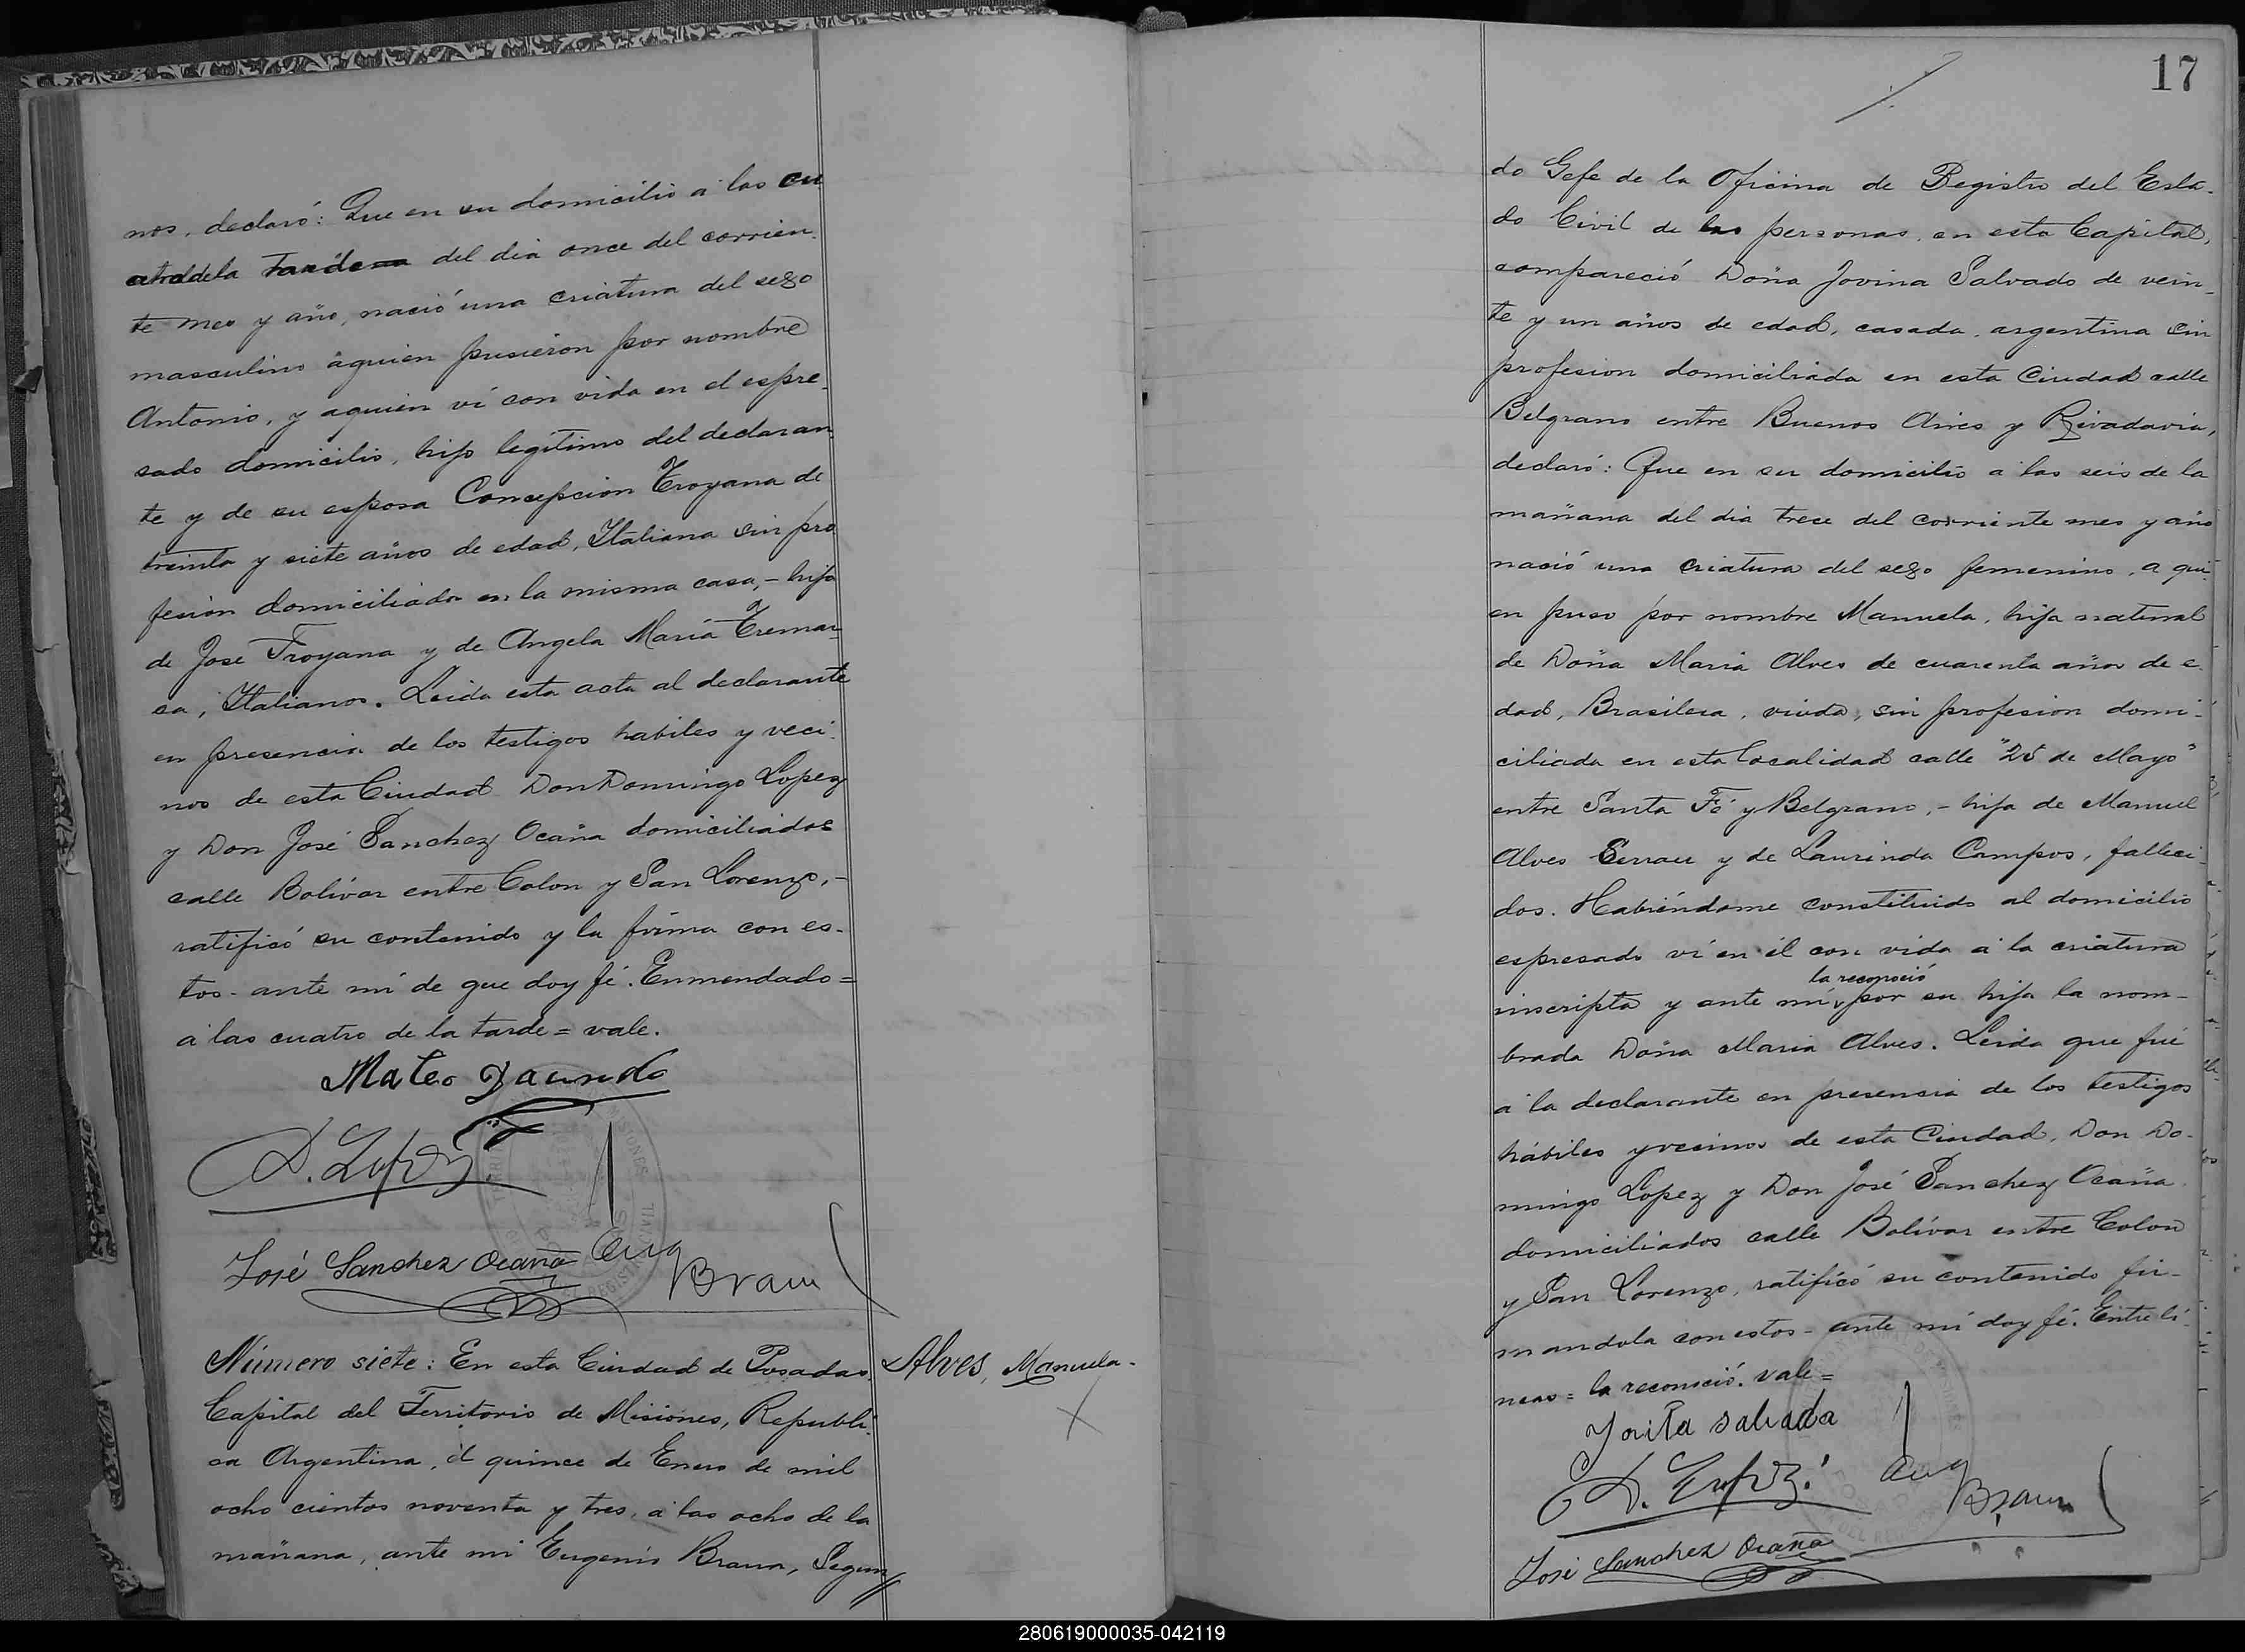 nos, declaró: Que en su domicilio á las cu
atro de la tarde del dia once del corrien-
te mes y año, nació una criatura del sexo
masculino áquien pusieron por nombre
Antonio, y aquien ví con vida en el espre-
sado domicilio, hijo legítimo del declaran-
te y de su esposa Concepcion Troyana de
treinta y siete años de edad, Italiana sin pro
fesion domiciliada en la misma casa, - hija
de José Troyana y de Angela María Tremar-
sa, Italianos. Leida esta acta al declarante
en presencia de los testigos habiles y veci-
nos de esta Ciudad Don Domingo Lopez
y Don José Sanchez Ocaña domiciliados
calle Bolívar entre Colon y San Lorenzo, -
ratificó su contenido y la firma con es-
tos - ante mi de que doy fé. Enmendado =
a las cuatro de la tarde = vale.
Mateo
D. Lopez
José Sanchez Ocaña Eug Braun
Número siete: En esta Ciudad de Posadas Alves, Manuela -
Capital del Territorio de Misiones, Republi-
ca Argentina, á quince de Enero de mil
ocho cientos noventa y tres, á las ocho de la
mañana, ante mi Eugenio Braun, Segun
17
do Gefe de la Oficina de Registro del Esta-
do Civil de las personas, en esta Capital,
compareció Doña Jovina Salvado de vein-
te y un años de edad, casada, argentina sin
profesion domiciliada en esta Ciudad calle
Belgrano entre Buenos Aires y Rivadavia,
declaró: Que en su domicilio a las seis de la
mañana del dia trece del corriente mes y año
nació una criatura del sexo femenino, a qui-
en puso por nombre Manuela, hija natural
de Doña Maria Alves de cuarenta años de e-
dad, Brasilera, viuda, sin profesion domi-
ciliada en esta localidad calle "25 de Mayo"
entre Santa Fé y Belgrano, - hija de Manuel
Alves y de Laurinda Campos, falleci-
dos. Habiéndome constituido al domicilio
espresado ví en él con vida á la criatura
la reconoció
inscripta y ante mí, por su hija la nom-
brada Doña Maria Alves. Leida que fué
á la declarante en presencia de los testigos
hábiles y vecinos de esta Ciudad, Don Do-
mingo Lopez y Don José Sanchez Ocaña
domiciliados calle Bolívar entre Colon
y San Lorenzo, ratificó su contenido fir-
mandola con estos - ante mi doy fé. Entre lí-
neas = la reconoció. vale =
D. Lopez Eug Braun
José Sanchez Ocaña
280619000035-042119